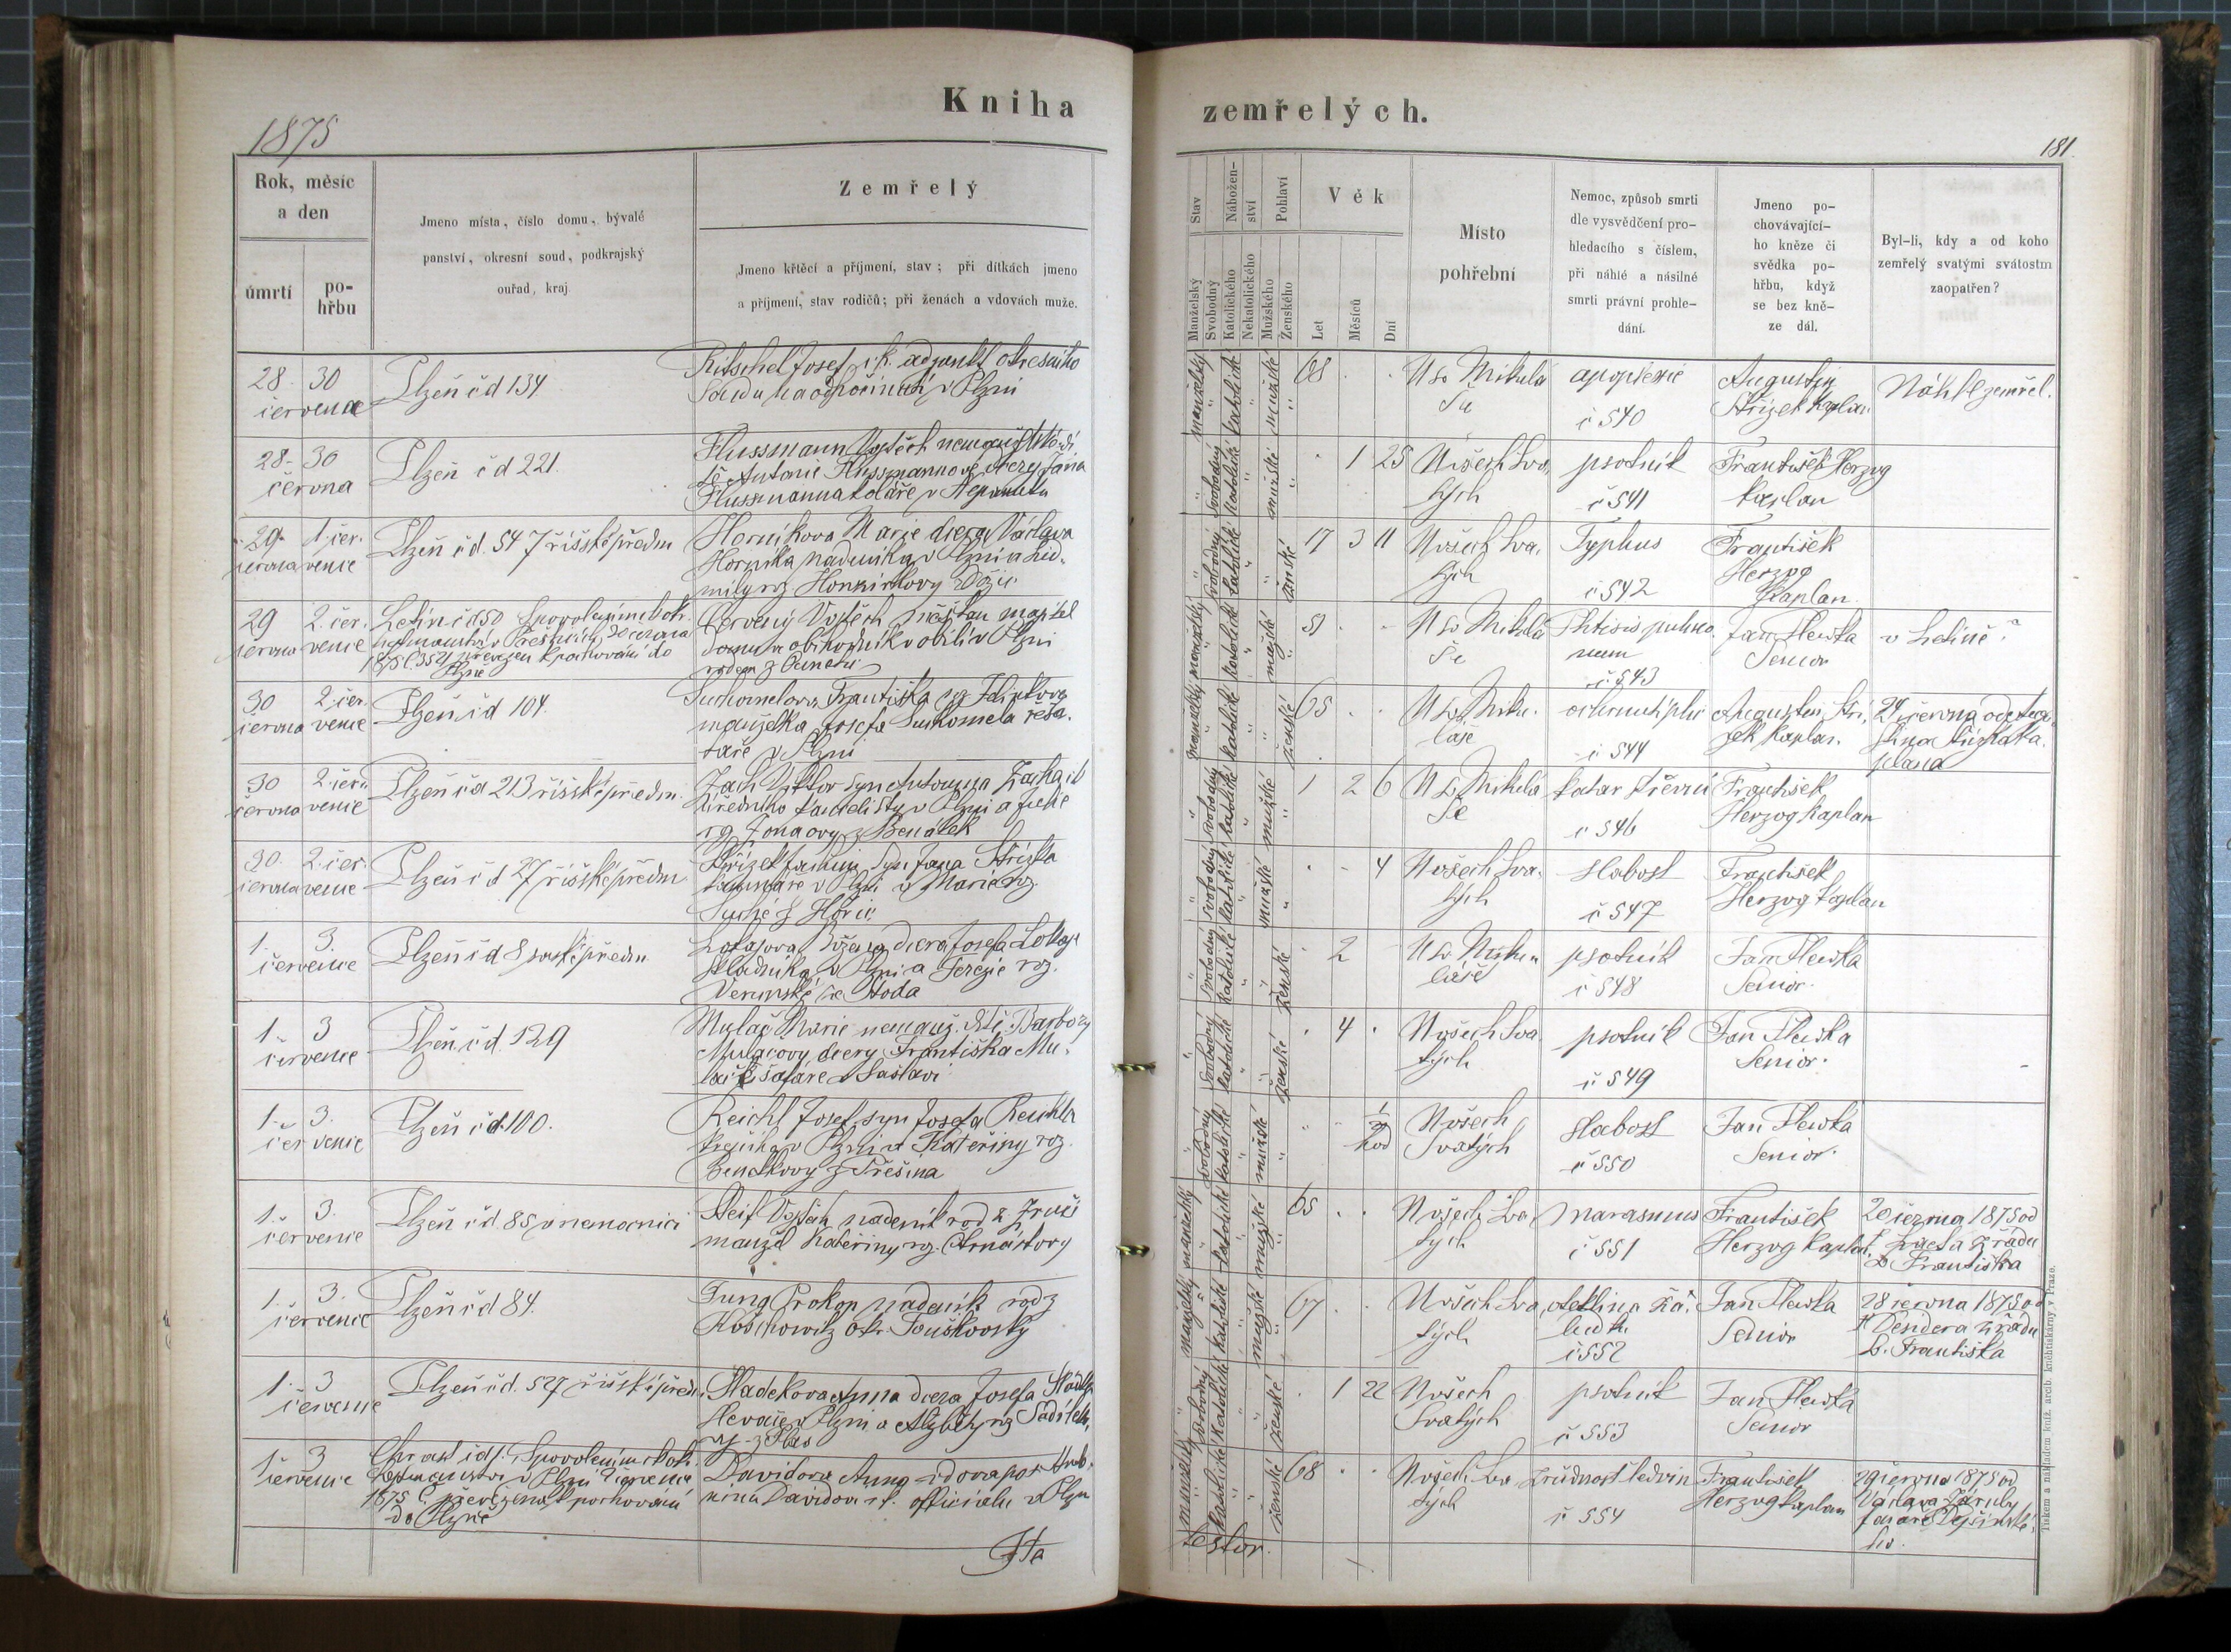 Kniha
zemřelých.
1875
181.
Rok, měsíc
a den
úmrtí
po-
hřbu
Jmeno místa, číslo domu, bývalé
panství, okresní soud, podkrajský
ouřad, kraj.
Zemřelý
Jmeno křtěcí a příjmení, stav; při dítkách jmeno
a příjmení, stav rodičů; při ženách a vdovách muže.
Stav
Nábožen-
ství
Pohlaví
Manželský
Svobodný
Katolického
Nekatolického
Mužského
Ženského
Věk
Let
Měsíců
Dní
Místo
pohřební
Nemoc, způsob smrti
dle vysvědčení pro-
hledacího s číslem,
při náhlé a násilné
smrti právní prohle-
dání.
Jmeno po-
chovávající-
ho kněze či
svědka po-
hřbu, když
se bez kně-
ze dál.
Byl-li, kdy a od koho
zemřelý svatými svátostm
zaopatřen?
28. 30
června
Plzeň čd 134
Ritschel Josef c.k. adjunkt okresního
soudu na odpočinutí v Plzni
manželský katolické mužské
68 . .
U sv Mikulá
še
apoplexie
č 540
Augustin
Střízek kaplan
Náhle zemřel.
28. 30
června
Plzeň č d 221.
Flussmann Vojtěch nemanželské dí
tě Antonie Flussmannové dcery Jana
Flussmanna koláře v Nepomuku
svobodný katolické mužské
. 1 25
U všech Sva
tých
psotník
č 541
František Herzog
kaplan
29. 1. čer.
června vence
Plzeň čd. 547 říšské předm
Horníkova Marie dcera Václava
Horníka nádeníka v Plzni a Lid-
mily roz
svobodný katolické ženské
17 3 11
U všech Sva-
tých
Typhus
č 542
František
Herzog
Kaplan.
29 2. čer.
června vence
Letin čd 50 S povolením c.k. ok.
hejtmanství v Přešticích 30 června
1875 č. 3521 převezen k pochování do
Plzně
Červený Vojtěch měšťan majitel
domu a obchodník v obilí v Plzni
rodem z
manželský katolické mužské
51 . .
U sv Mikulá
še
Phtisis pulmo
num
č 543
Jan Hewka
Senior
v Letině?
30 2. čer.
června vence
Plzeň čd 104.
Suchomelova Františka roz.
manželka Josefa Suchomela řeša-
táře v Plzni
manželský katolické ženské
65 . .
U Sv. Miku-
láše
ochrnutí plic
č 544
Augustin Stří-
zek kaplan.
24 června od Augu-
stina Střízka ka-
plana
30 2. čer
června vence
Plzeň čd 213 říšské předm.
Zach Viktor syn Antonína Zacha
úředního kancelisty v Plzni a Julie
roz. z Benátek
svobodný katolické mužské
1 2 6
U Sv Mikulá
še
katar střevní
č 546
František
Herzog kaplan
30. 2. čer.
června vence
Plzeň čd 27 říšské předm
Střízek Jáchim syn Jana Střízka
v Plzni a Marie roz.
Suché z Hořic
svobodný katolické mužské
. - 4
U všech Sva-
tých
Slabost
č 547
František
Herzog kaplan
1. 3.
července
Plzeň čd 8 předm
Lokajova Božena dcera Josefa Lokaje
skladníka v Plzni a Terezie roz.
ze Stoda
svobodný katolické ženské
. 2
U Sv Miku
láše
psotník
č 548
Jan Hewka
Senior.
1. 3
července
Plzeň čd. 129
Mulač Marie nemanž. dítě Barbory
Mulačovy dcery Františka Mu-
lače šafáře v
svobodný katolické ženské
. 4 .
U všech Sva
tých
psotník
č 549
Jan Hewka
Senior.
1. 3.
července
Plzeň čd 100.
Reichl Josef, syn Josefa Reichla
krejčího v Plzni a Kateřiny roz.
Benešovy z Přešina
svobodný katolické mužské
1/2
hod
U všech
Svatých
Slabost
č 550
Jan Hewka
Senior.
1. 3.
července
Plzeň čd. 85 v nemocnici
Vojtěch nádeník rod z
manžel Kateřiny roz.
manželský katolické mužské
65 . .
U všech Sva
tých
Marasmus
č 551
František
Herzog kaplan.
20 června 1875 od
z řádu
S. Františka
1. 3.
července
Plzeň čd 84.
Jung Prokop nádeník rod z
okr.
manželský katolické mužské
67 . .
U všech Sva
tých
č 552
Jan Hewka
Senior
28 června 1875 od
P. z řádu
S. Františka
1. 3
července
Plzeň čd. 527 říšské předm.
Sladekova Anna dcera Josefa Sládka
v Plzni a Alžběty roz
z Plas
svobodný katolické ženské
. 1 22
U všech
Svatých
psotník
č 553
Jan Hewka
Senior
1. 3
července
Chrast čd. S povolením c.k. ok.
hejtmanství v Plzni července
1875 č. převežena k pochování
do Plzně
Davidova Anna vdova po
Davidovi c.k. officiálu v Plzni
manželský katolické ženské
68 . .
U všech Sva
tých
zrůdnost ledvin
č 554
František
Herzog kaplan
29 června 1875 od
Václava Záruby
faráře Dejšinské-
ho.
Tiskem a nákladem kníž. arcib. knihtiskárny v Praze.